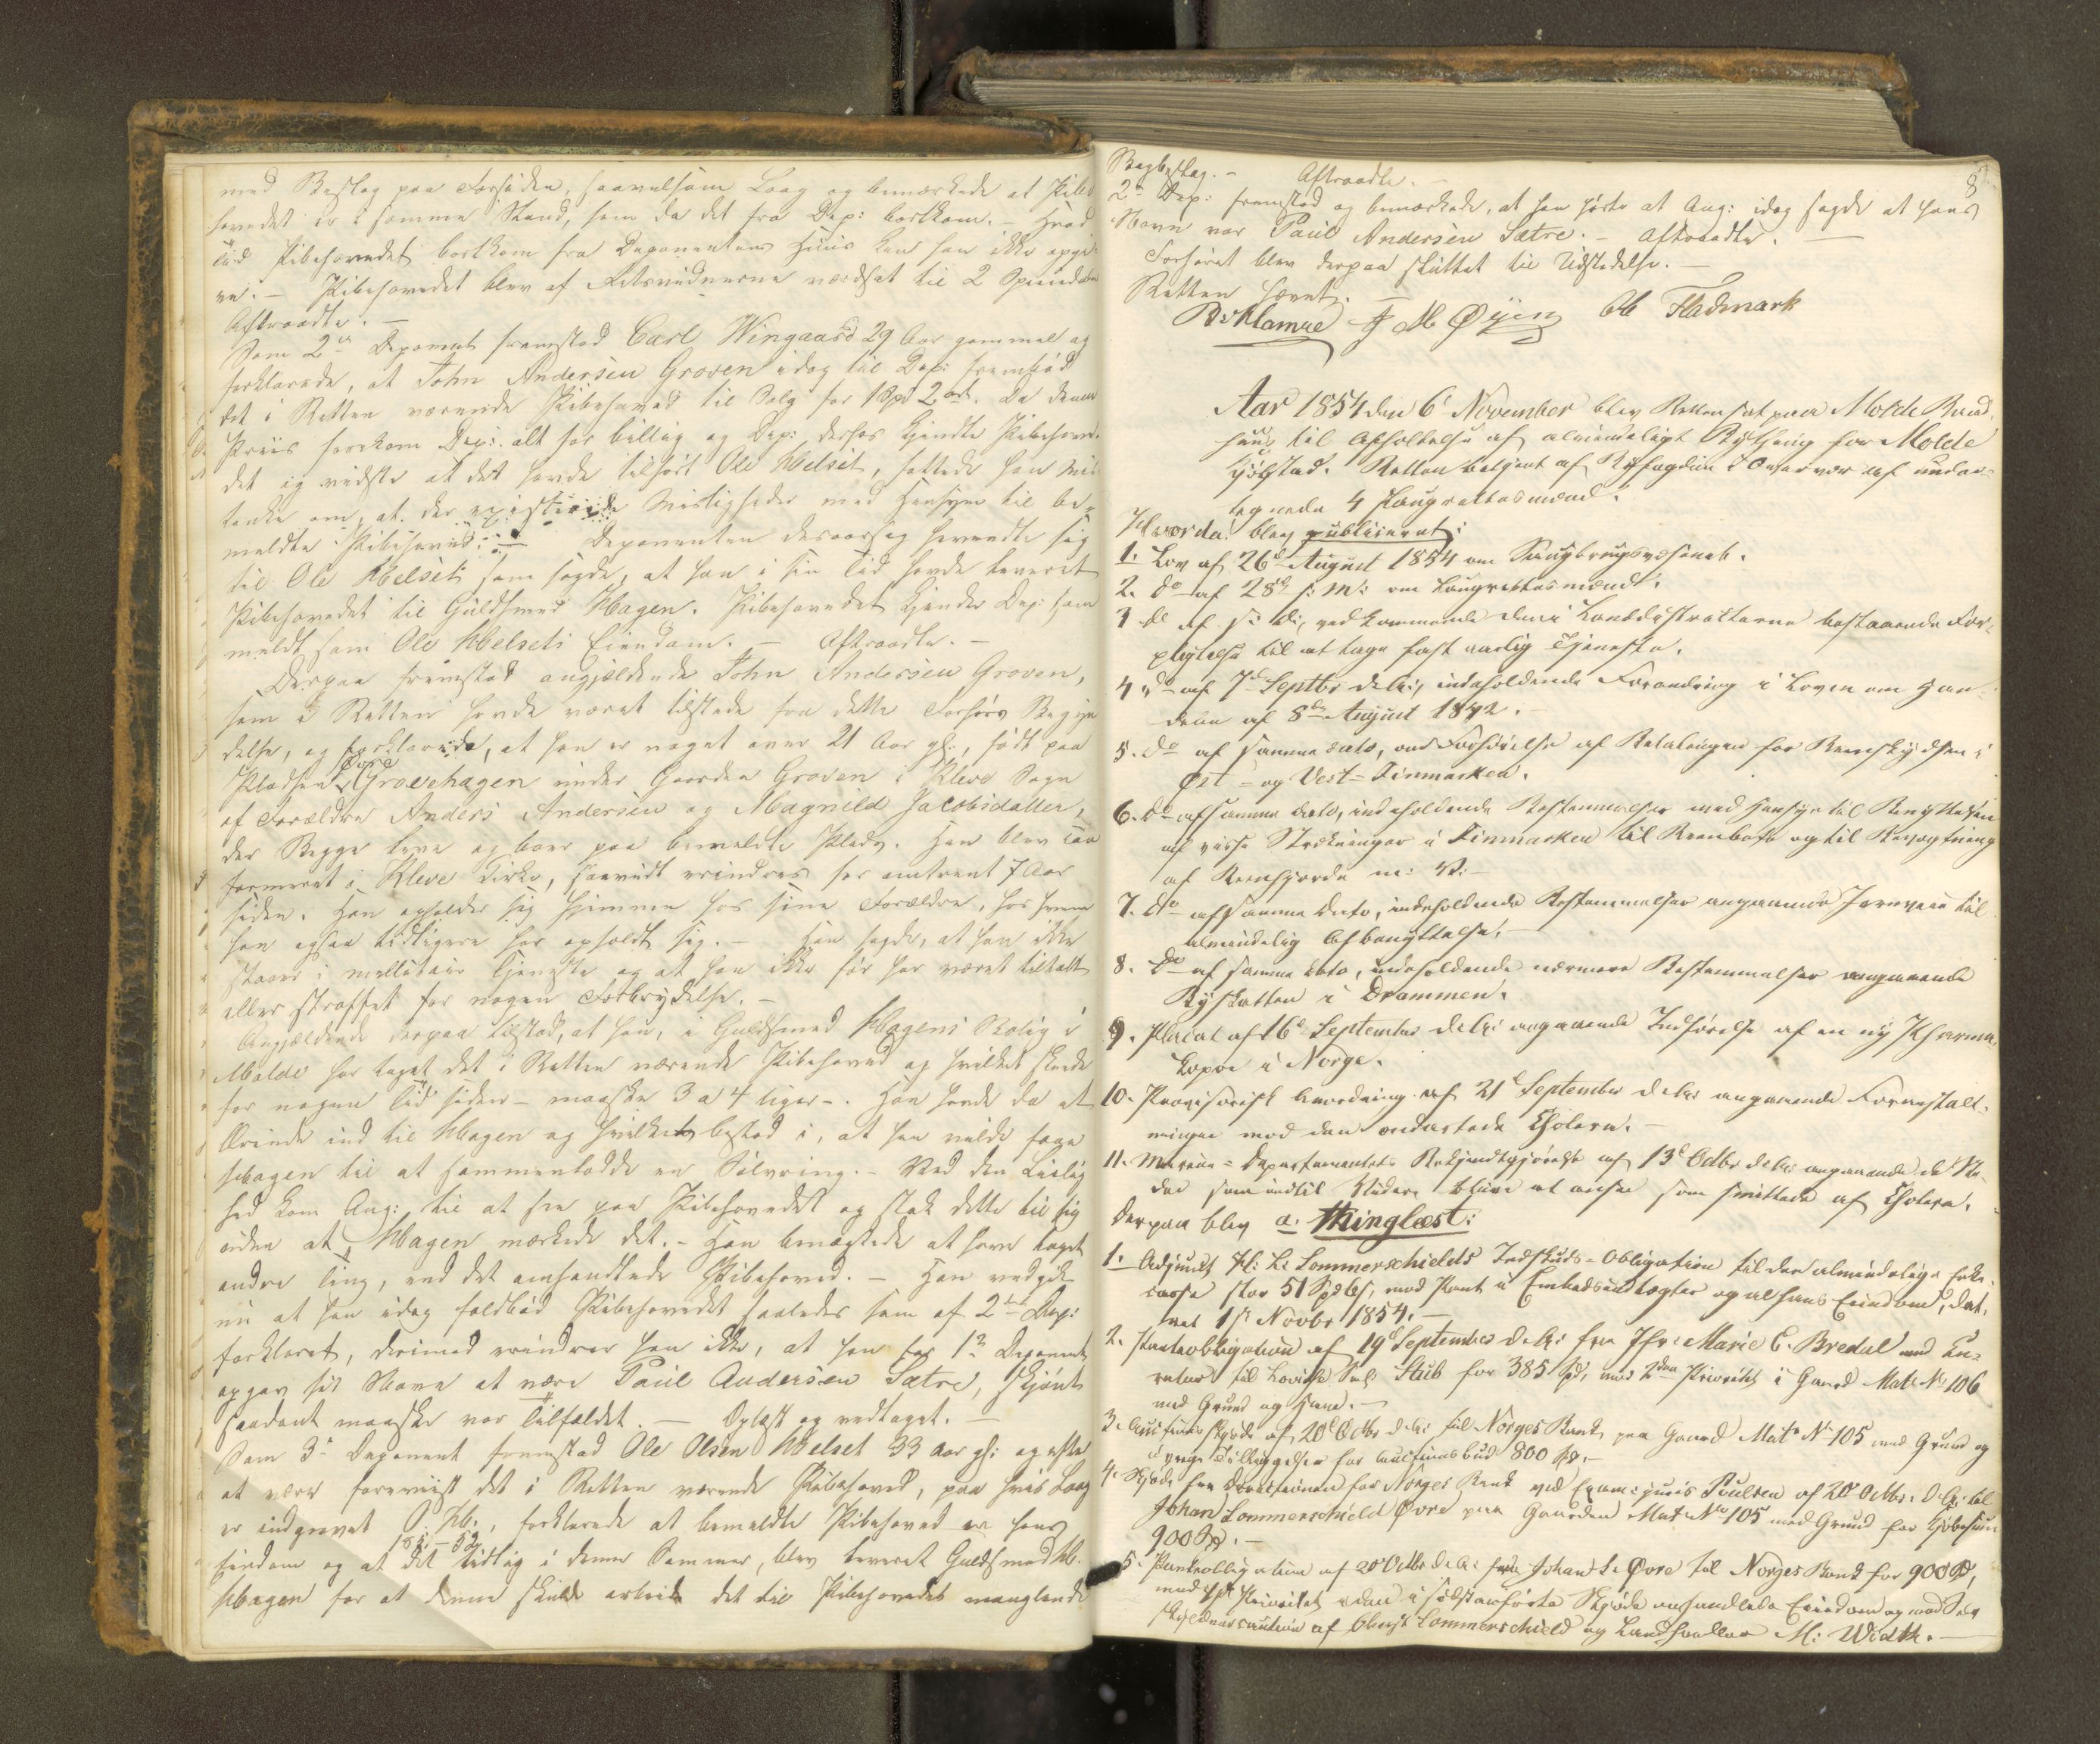 med Beslag paa Forsiden, saavelsom Laag og bemærkede at Pibe
hovedet er i samme Stand, som da det fra Dep: bortkom. – Hvad
Tid Pibehovedet bortkom fra Deponentens Huus kan han ikke opgi-
ve. – Pibehovedet blev af Retsvidnerne værdsat til 2 Speciedaler
Aftraadte. –
Som 2den Deponent fremstod Carl Wingaard 29 Aar gammel og
forklarede, at John Andersen Groven idag til Dep: frembød
det i Retten værende Pibehoved til Salg for 1 Spd 2 ort. Da denne
Priis forekom Dep: alt for billig og Dep: derhos kjendte Pibehove-
det og vidste at det havde tilhørt Ole Helset, fattede han Mis
tanke om, at der existerede Misligheder med Hensyn til be-
meldte Pibehoved. – Deponenten desaarsag henvendte sig
til Ole Helset, som sagde, at han i sin Tid havde leveret
Pibehovedet til Guldsmed Hagen. Pibehovedet kjender Dep: som
meldt som Ole Helsets Eiendom. – Aftraadte. –
Derpaa fremstod angjældende John Andersen Groven,
som i Retten havde været tilstede fra dette Forhørs Begyn
delse, og forklarede, at han er noget over 21 Aar gl:, født paa
Pladsen Grovehagen under Gaarden Groven i Kleve Sogn
af Forældre Anders Andersen og Magnild Jacobsdatter,
der Begge leve og boer paa bemeldte Plads. Han blev con
firmeret i Kleve Kirke, saavidt erindres for omtrent 7 Aar
siden. Han opholder sig hjemme hos sine Forældre, hos hvem
han ogsaa tidligere har opholdt sig. – Han sagde, at han ikke
staaer i militair Tjeneste og at han ikke før har været tiltalt
eller straffet for nogen Forbrydelse. –
Angjældende derpaa tilstod, at han, i Guldsmed Hagens Bolig i
Molde har taget det i Retten værende Pibehoved og hvilket skede
for nogen Tid siden – maaske 3 a 4 Uger –. Han havde da et
Ærinde ind til Hagen og hvilket bestod i, at han vilde faae
Hagen til at sammenlodde en Sølvring. – Ved den Leilig
hed kom Ang: til at see paa Pibehovedet og stak dette til sig
uden at Hagen mærkede det. – Han benægtede at have taget
andre Ting, end det omhandlede Pibehoved. – Han vedgik
nu at han idag falbød Pibehovedet saaledes som af 2den Dep:
forklaret, derimod erindrer han ikke, at han for 1ste Deponent
opgav sit Navn at være Paul Andersen Sætre, skjønt
saadant maaske var Tilfældet. – Oplæst og vedtaget. –
Som 3die Deponent fremstod Ole Olsen Helset 33 Aar gl: og efter
at være foreviist det i Retten værende Pibehoved, paa hvis Laag
er indgravet O. H., forklarede at bemeldte Pibehoved er hans
Eiendom og at det tidlig i denne Sommer, blev leveret Guldsmed H.
Hagen for at denne skulde arbeide det til Pibehovedet manglende
8
Bagbeslag. – Aftraadte. –
2den Dep: fremstod og bemærkede, at han hørte at Ang: idag sagde at hans
Navn var Paul Andersen Sætre. – Aftraadte. –
Forhøret blev derpaa sluttet til Udstedelse. –
Retten hævet. –
Klamre M Øyen Ole Fladmark
Aar 1854 den 6te November blev Retten sat paa Molde Raad-
huus til Afholdelse af almindeligt Bything for Molde
Kjøbstad. Retten betjent af Byfogden i Overvær af under-
tegnede 4 Laugrettesmænd.
Hvorda blev publiceret:
1. Lov af 26de August 1854 om Saugbrugsvæsenet.
2. do af 28de s: M: om Laugrettesmænd.
3 do af s: D:, vedkommende den i Landdistricterne bestaaende For-
pligtelse til at tage fast aarlig Tjeneste.
4 do af 7de Septbr d. A:, indeholdende Forandring i Loven om Han-
delen af 8de August 1842.
5. do af samme Dato, om Forhøielse af Betalingen for Reenskydsen i
Øst- og Vest-Finmarken.
6. do af samme Dato, indeholdende Bestemmelser med Hensyn til Benyttelsen
af visse Strækninger i Finmarken til Reenbete og til Bevogtning
af Reenhjorde m: V: –
7. do af samme Dato, indeholdende Bestemmelser angaaende Jernveie til
almindelig Afbenyttelse. –
8. do af samme Dato, indeholdende nærmere Bestemmelser angaaende
Byskatten i Drammen.
9. Placat af 16de September d. A: angaaende Indførelse af en ny Pharma-
kopoe i Norge.
10. Provisorisk Anordning af 21de September d. A: angaaende Foranstalt-
ninger mod den ondartede Cholera. –
11. Marine-Departementets Bekjendtgjørelse af 13de Octbr d. A: angaaende de Ste-
der som indtil Videre blive at ansee som smittede af Cholera.
Derpaa blev a. thinglæst:
1. Adjunct H: L: Sommerschields Indskuds-Obligation til den almindelige Enke-
casse stor 51 Spd, mod Pant i Embedsindtægter og al hans Eiendom, dat-
eret 1ste Novbr 1854. –
2. Panteobligation af 19de September d. A: fra Jfr: Marie C. Bredal med Cu-
rator til Lovise Stub for 385 Spd, mod 2den Prioritet i Gaard Mat: No 106
med Grund og Have. –
3. Auctions Skjøde af 20de Octbr d. A: til Norges Bank, paa Gaard Mat: No 105 med Grund og
øvrige Tilliggelser for Auctionsbud 800 Spd. –
4. Skjøde fra Directionen for Norges Bank ved Exam: juris Poulsen af 20de Octbr: d. A: til
Johan Sommerschield Øvre paa Gaarden Mat: No 105 med Grund for Kjøbesum
900 Spd. –
5. Panteobligation af 20de Octbr d. A: fra Johan S. Øvre til Norges Bank for 900 Spd,
mod 1ste Prioritet i den i sidstanførte Skjøde omhandlede Eiendom og mod Selv
skyldnercaution af Oberst Sommerschield og Landhandler M: Width. –